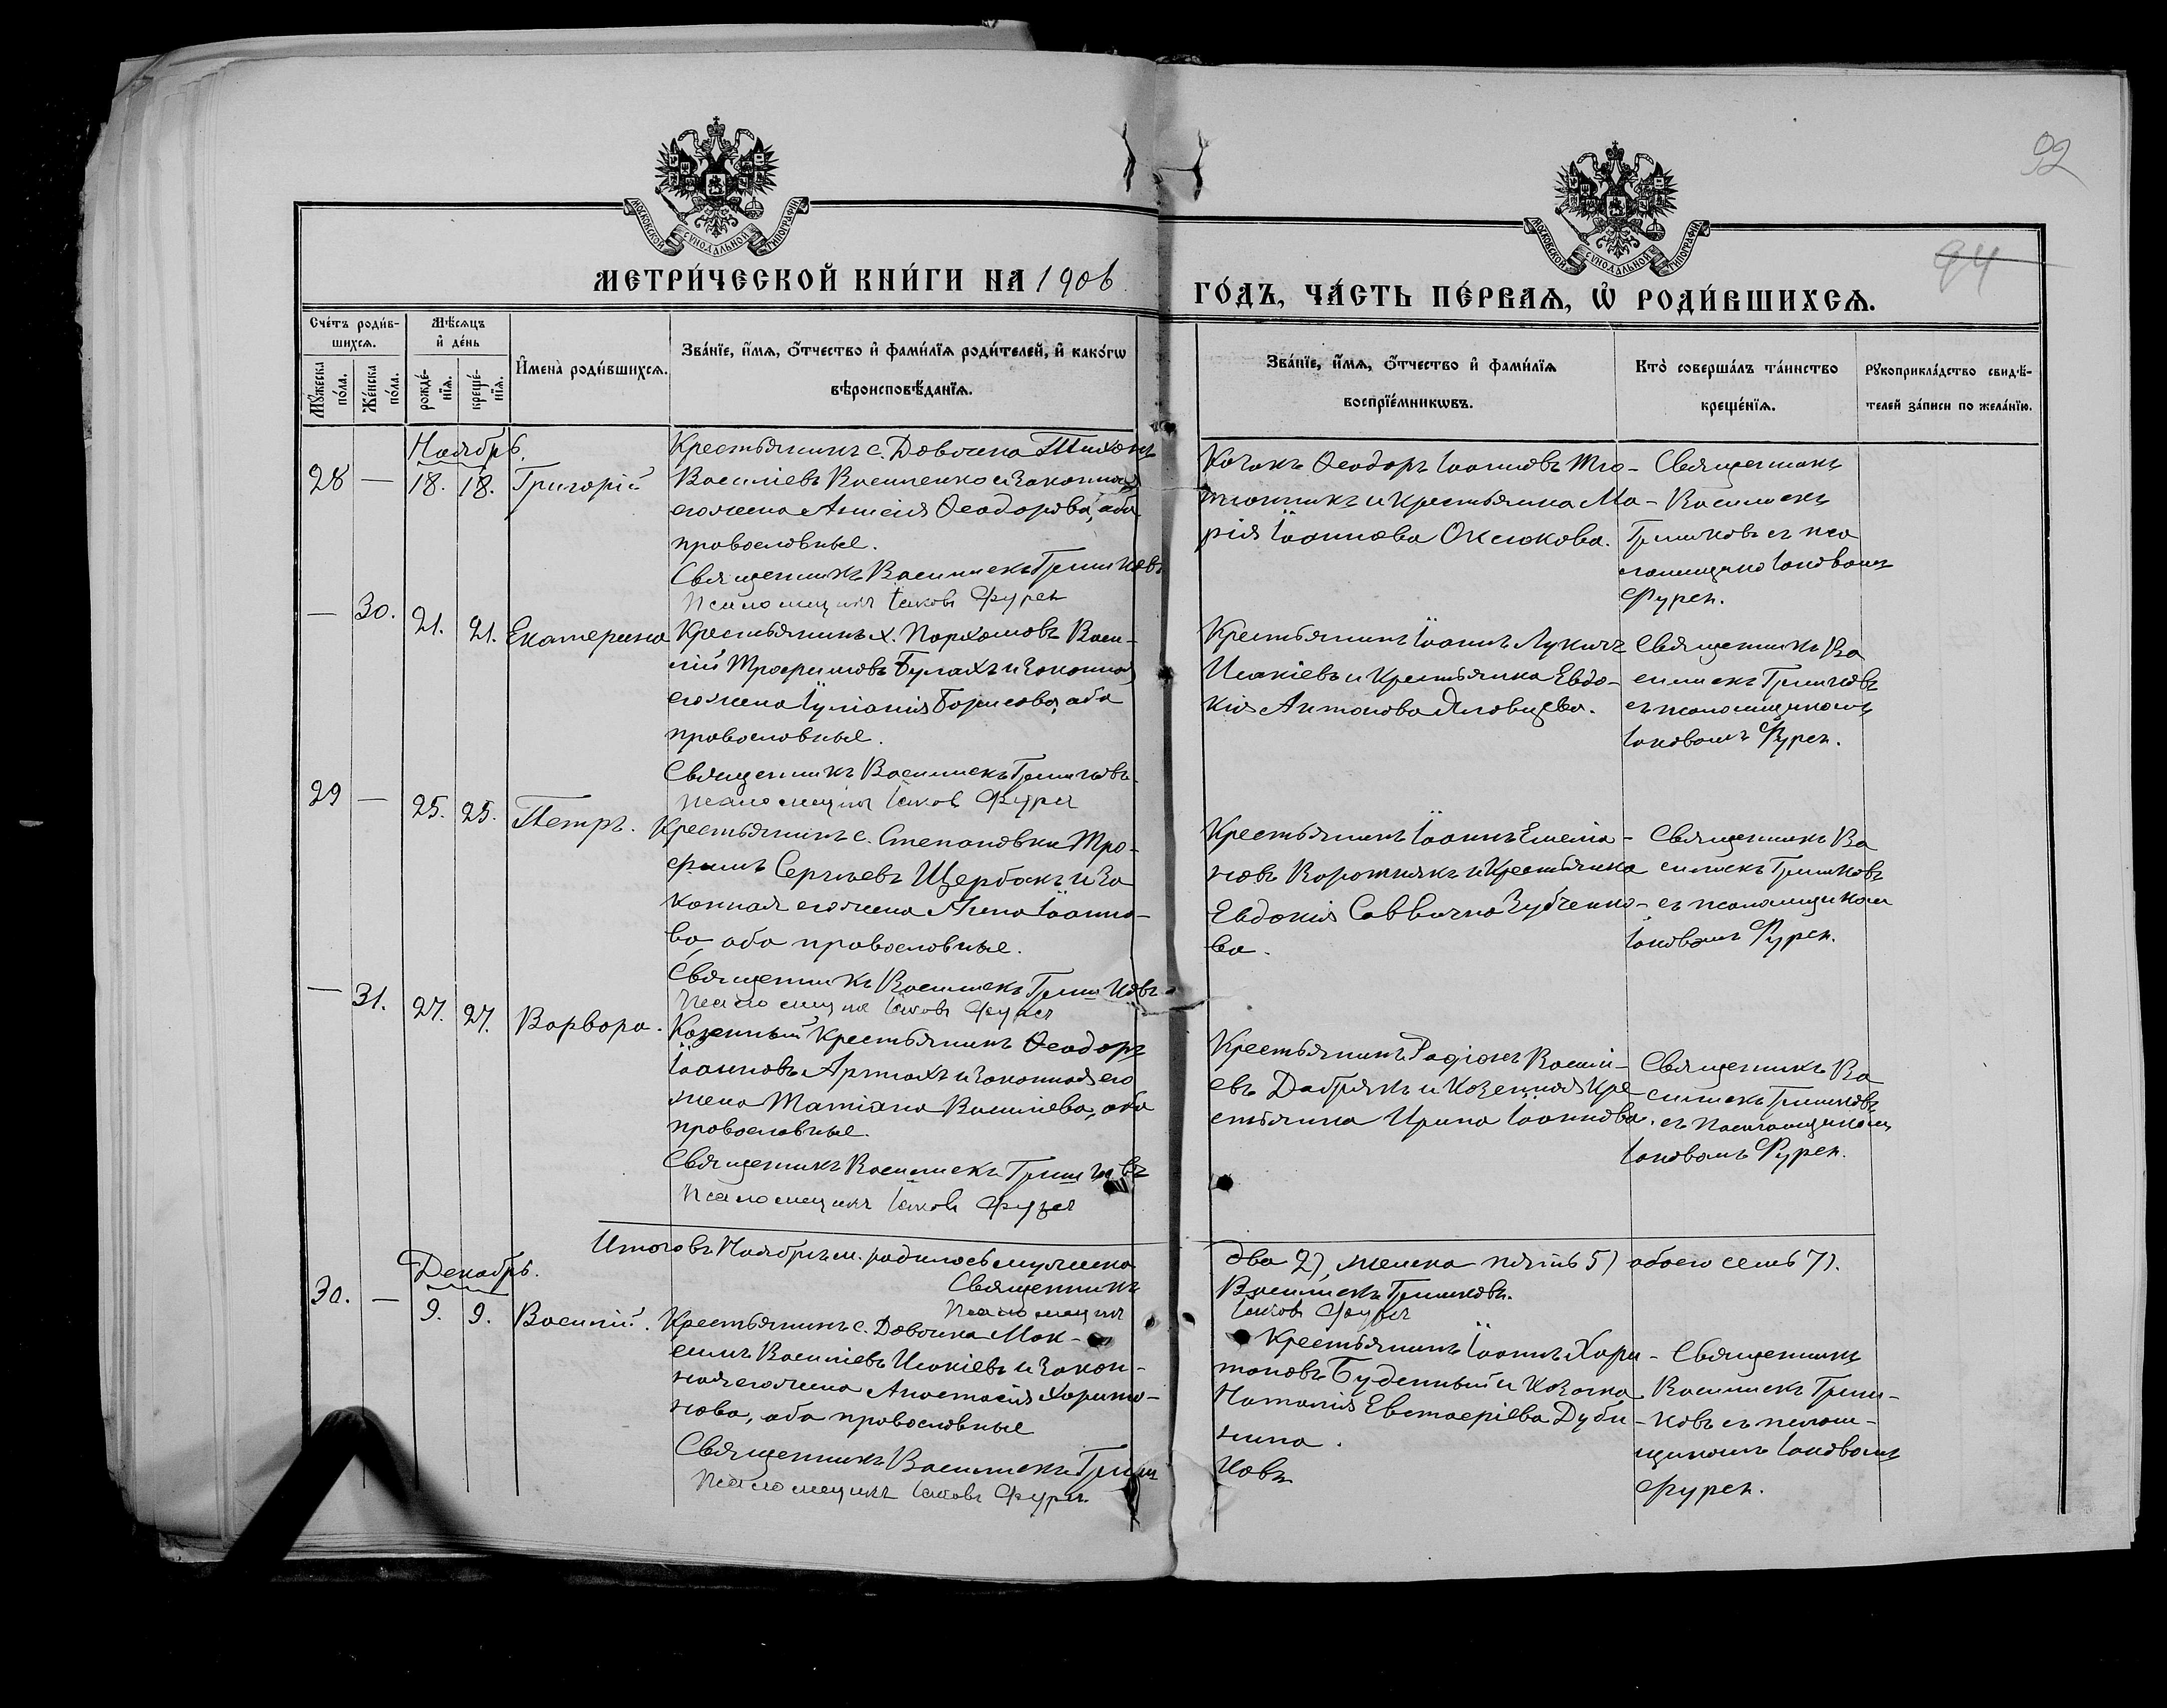 92
94
МОСКОВСКОЙ СѴНОДАЛЬНОЙ ТИПОГРАФІИ
МОСКОВСКОЙ СѴНОДАЛЬНОЙ ТИПОГРАФІИ
МЕТРИ́ЧЕСКОЙ КНИ́ГИ НА 1906
ГО́ДЪ, ЧА́СТЬ ПЕ́РВАѦ, Ѽ РОДИ́ВШИХСѦ.
Счетъ роди́в-
шихсѧ.
Мꙋ́жеска по́ла.
Же́нска по́ла.
Мѣ́сѧцъ
и҆ де́нь
рожде́-
нїѧ.
креще́-
нїѧ.
И҆мена̀ роди́вшихсѧ.
Зва́нїе, и҆́мѧ, ѻ҆́тчество и҆ фами́лїѧ роди́телей, и҆ како́гѡ
вѣроисповѣ́данїѧ.
Зва́нїе, и҆́мѧ, ѻ҆́тчество и҆ фами́лїѧ
воспрїе́мникѡвъ.
Кто̀ соверша́лъ та́инство
креще́нїѧ.
Рꙋкоприкла́дство свидѣ́-
телей за́писи по жела́нїю.
Ноябрь.
28 — 18. 18. Григорій
Крестьянинъ с. Довжина Тихонъ
Василіевъ Василенко и законная
его жена Анисія Ѳеодорова, оба
православные.
Священникъ Василискъ Гришковъ
Псаломщикъ Іаковъ Фурсъ
Козакъ Ѳеодоръ Іоанновъ Тю-
тюнникъ и крестьянка Ма-
рія Іоаннова Оксюкова.
Священникъ
Василискъ
Гришковъ съ пса
ломщико Іаковомъ
Фурсъ.
— 30. 21. 21. Екатерина
Крестьянинъ х. Пархомовъ Васи-
лій Трофимовъ Булахъ и законная
его жена Іуліанія Борисова, оба
православные.
Священникъ Василискъ Гришковъ
Псаломщикъ Іаковъ Фурсъ
Крестьянинъ Іоаннъ Лукичъ
Исакіевъ и крестьянка Евдо-
кія Антонова
Священникъ Ва
силискъ Гришковъ
съ псаломщикомъ
Іаковомъ Фурсъ.
29 — 25. 25. Петръ.
Крестьянинъ с. Степановки Тро-
фимъ Сергіевъ Щербакъ и за
конная его жена Анна Іоанно-
ва, оба православные.
Священникъ Василискъ Гришковъ
Псаломщикъ Іаковъ Фурсъ
Крестьянинъ Іоаннъ Емелiа-
новъ Воротнякъ и крестьянка
Евдокія Саввична Зубченко-
ва.
Священникъ Ва
силискъ Гришковъ
съ псаломщикомъ
Іаковомъ Фурсъ.
— 31. 27. 27. Варвара.
Казенный крестьянинъ Ѳеодоръ
Іоанновъ Артюхъ и законная его
жена Татіана Василіева, оба
православные.
Священникъ Василискъ Гришковъ
Псаломщикъ Іаковъ Фурсъ
Крестьянинъ Родіонъ Василі-
евъ Добрякъ и казенная кре
стьянка Ирина Іоаннова.
Священникъ Ва
силискъ Гришковъ
съ псаломщикомъ
Іаковомъ Фурсъ.
Итого въ Ноябрѣ м. родилось мужеска
два 2), женска пять 5) обоего семь 7).
Священникъ
Василискъ Гришковъ.
Псаломщикъ
Іаковъ Фурсъ
Декабрь.
30. — 9. 9. Василій.
Крестьянинъ с. Довжина Мак-
симъ Василіевъ Исакіевъ и закон-
ная его жена Анастасія Харито-
нова, оба православные
Священникъ Василискъ Гриш
ковъ
Псаломщикъ Іаковъ Фурсъ.
Крестьянинъ Іоаннъ Хари-
тоновъ Буденный и козачка
Наталія Евстафіева Дуби-
нина.
Священникъ
Василискъ Гриш-
ковъ съ псалом-
щикомъ Іаковомъ
Фурсъ.